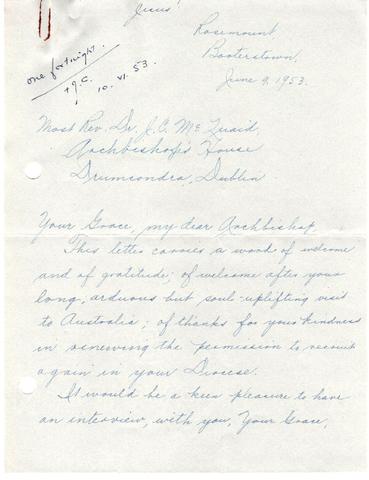 Jesus!
Rosemount
Booterstown.
June 9, 1953.
one fortnight.
+ J.C.
10. VI. 53.
Most Rev. Dr. J. C. McQuaid,
Archbishop's House
Drumcondra, Dublin
Your Grace, my dear Archbishop,
This letter carries a word of welcome
and of gratitude; of welcome after your
long, arduous but soul-uplifting visit
to Australia; of thanks for your kindness
in renewing the permission to recruit
again in your Diocese.
It would be a keen pleasure to have
an interview, with you, Your Grace,